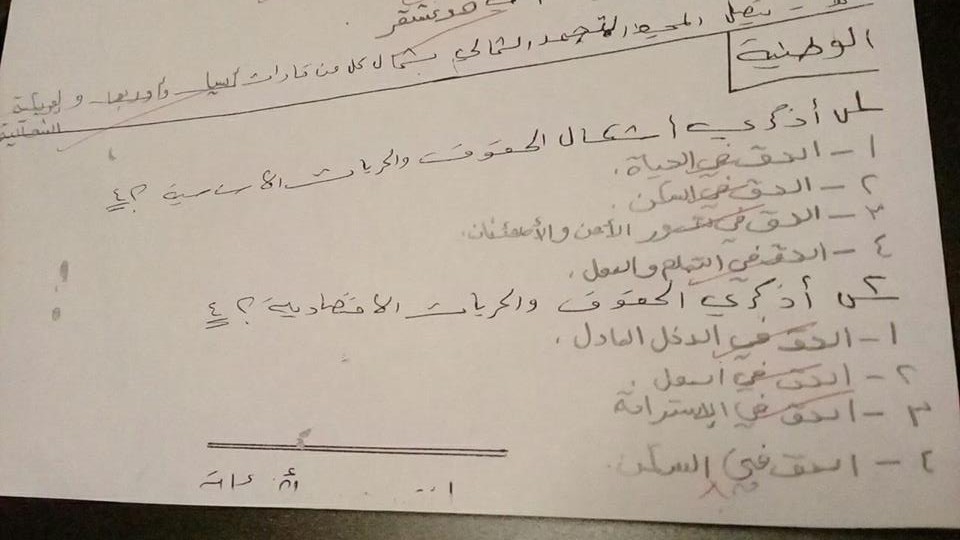 هو عشقر
يتصل المحيط المتجمد الشمالي بشمال كل من قارات آسيا وأوربا و
الشمالية
الوطنية
س١ أذكري أشكال الحقوق والحريات الاساسية ؟ ٤
١ - الحق في الحياة .
٢ - الحق في السكن .
٣ - الحق في الأمن والأطمئنان .
٤ - الحق في التعلم والعمل .
س٢ أذكري الحقوق والحريات الاقتصادية ؟ ٤
١ - الحق في الدخل العادل .
٢ - الحق في العمل .
٣ - الحق في
٤ - الحق في السكن .